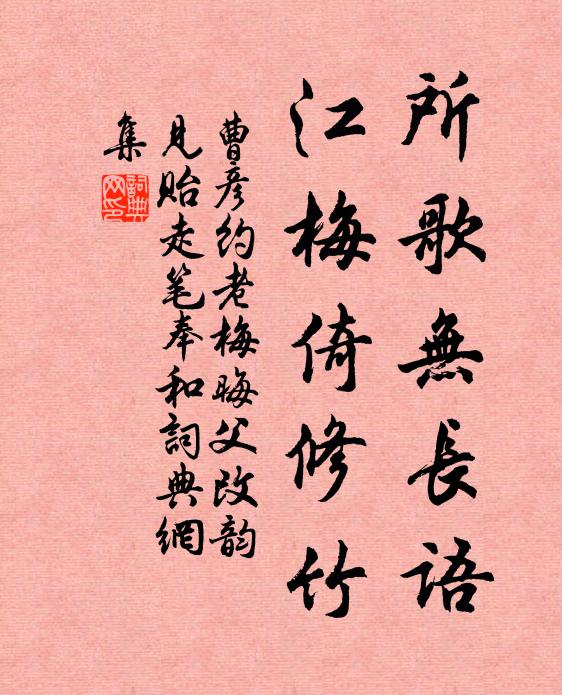 所歌無長語
江梅倚修竹
曹彦約老梅晦父改韵
見貽走笔奉和詞典網
集
詞典
网印